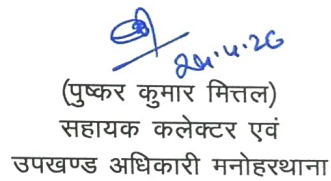 24.4.26
(पुष्कर कुमार मित्तल)
सहायक कलेक्टर एवं
उपखण्ड अधिकारी मनोहरथाना